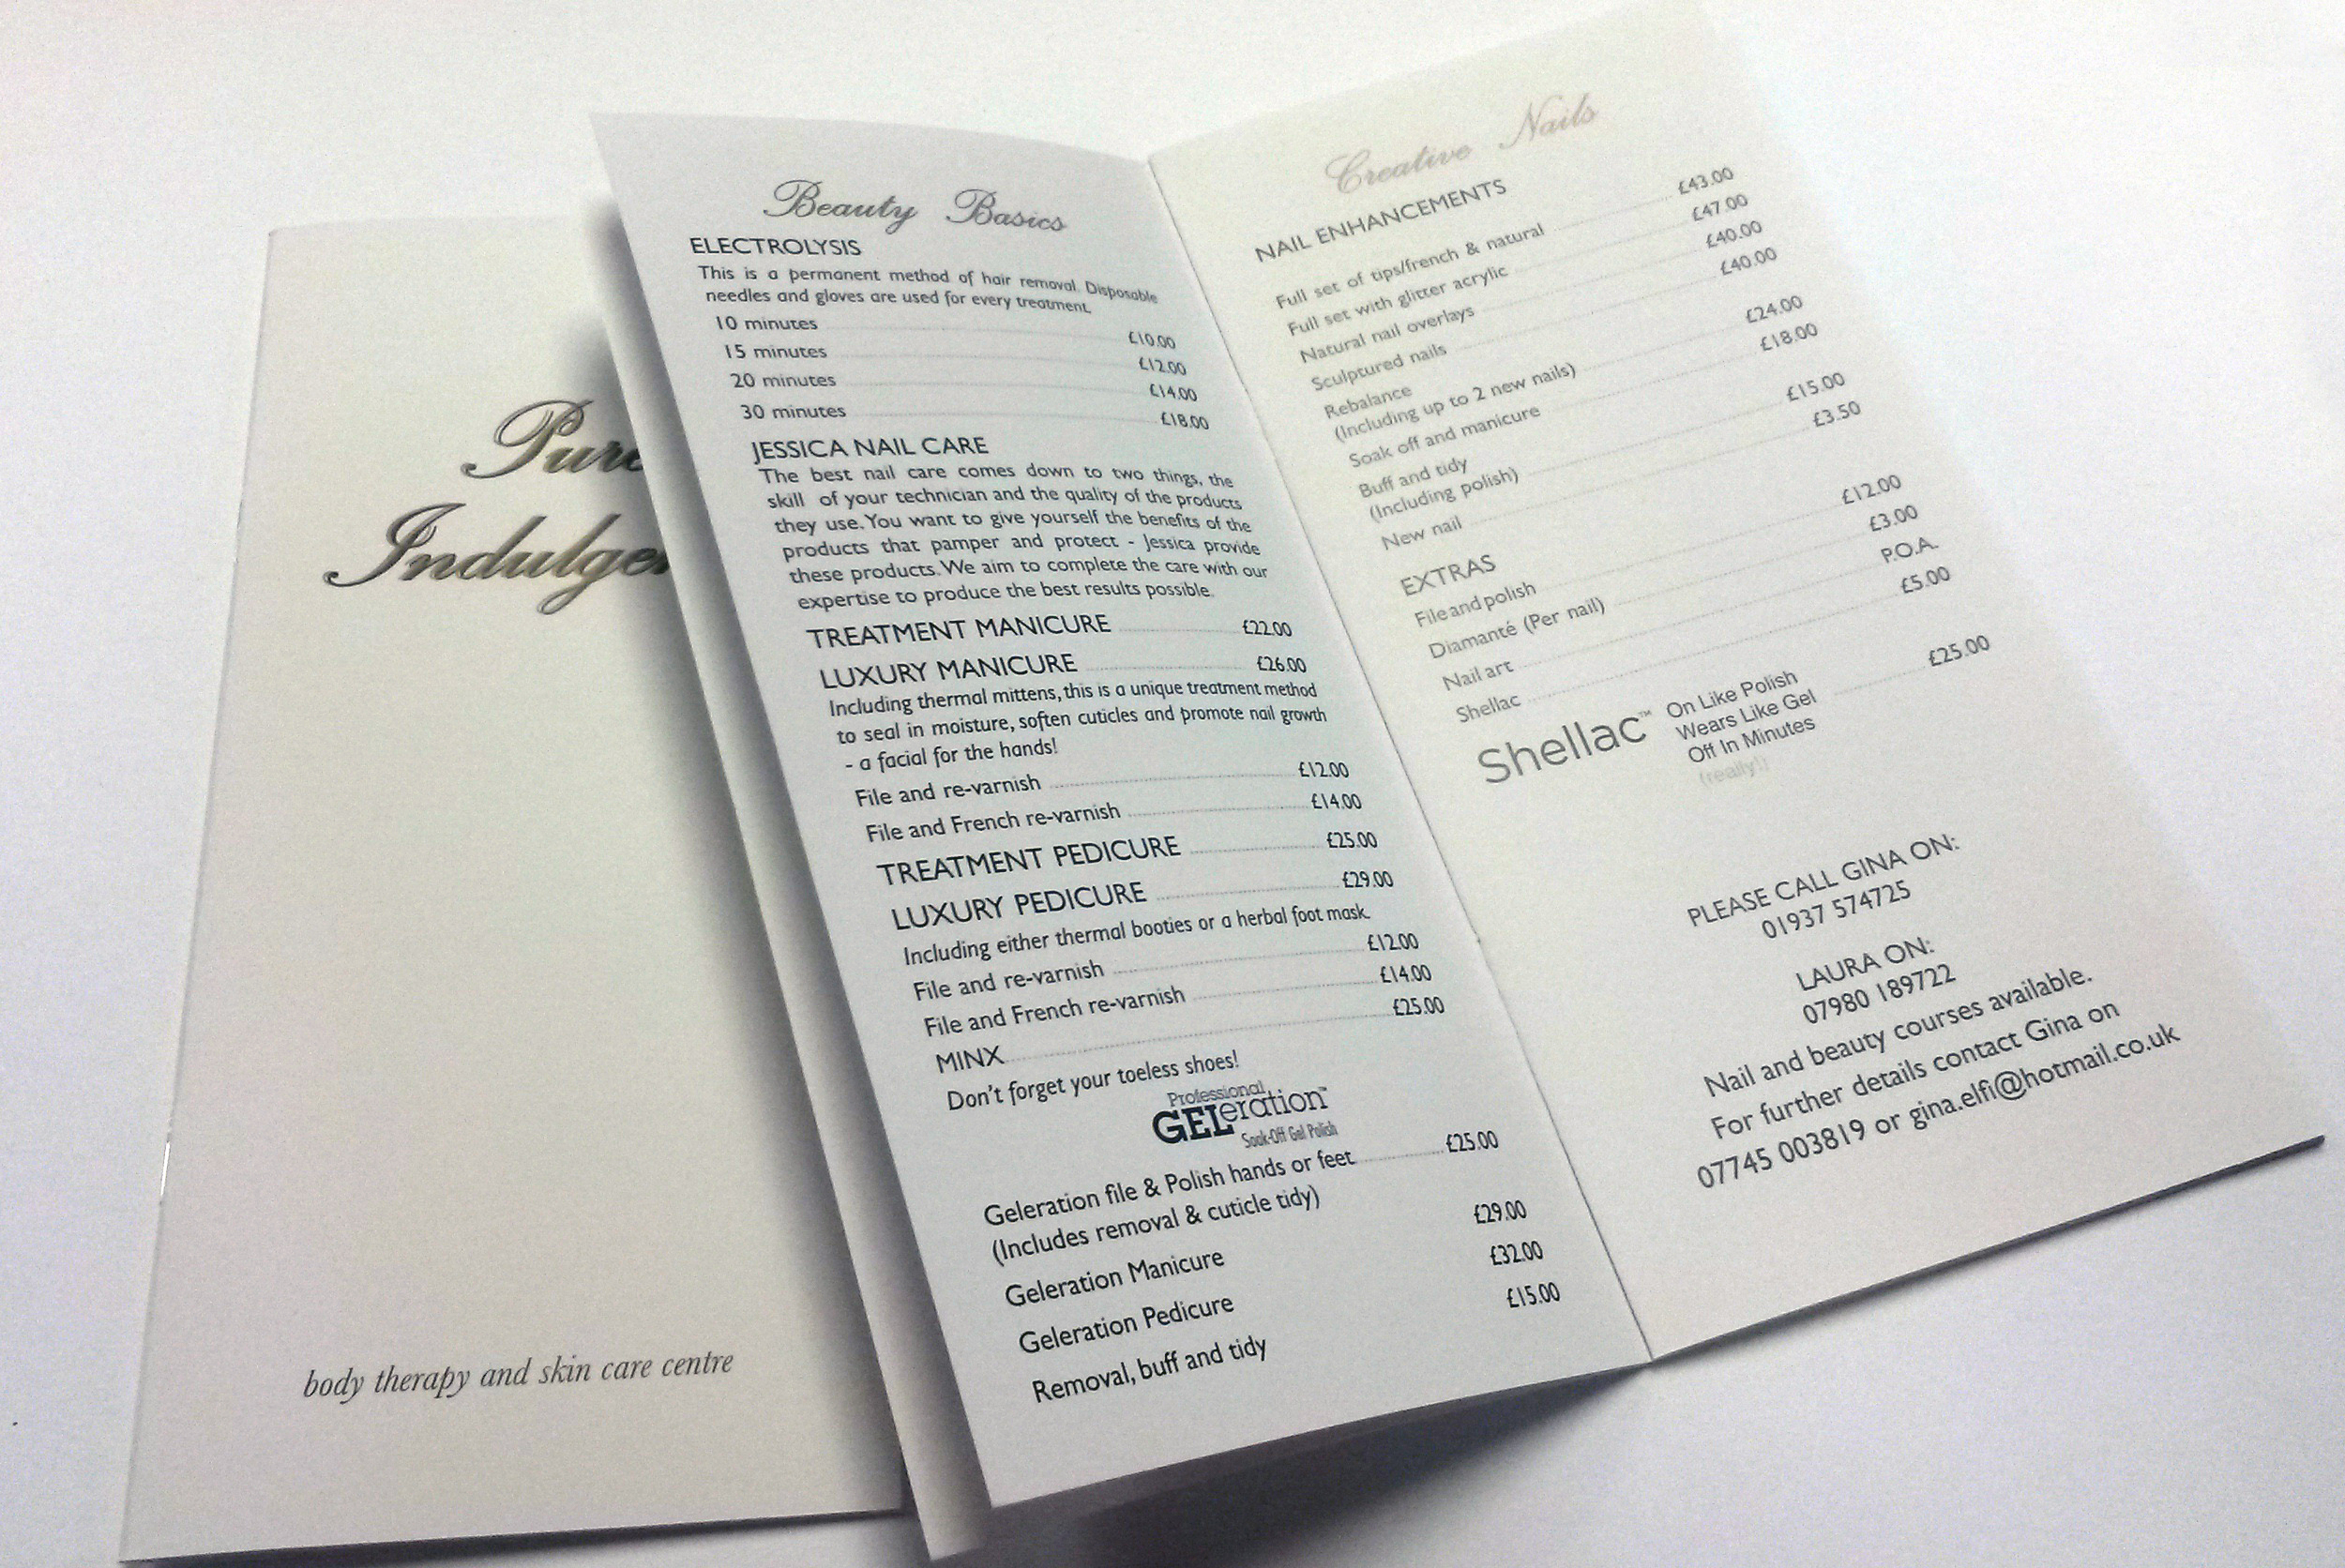 Pure
Indulge
body therapy and skin care centre
Beauty Basics
ELECTROLYSIS
This is a permanent method of hair removal. Disposable
needles and gloves are used for every treatment.
10 minutes £10.00
15 minutes £12.00
20 minutes £14.00
30 minutes £18.00
JESSICA NAIL CARE
The best nail care comes down to two things, the
skill of your technician and the quality of the products
they use. You want to give yourself the benefits of the
products that pamper and protect - Jessica provide
these products. We aim to complete the care with our
expertise to produce the best results possible.
TREATMENT MANICURE £22.00
LUXURY MANICURE £26.00
Including thermal mittens, this is a unique treatment method
to seal in moisture, soften cuticles and promote nail growth
- a facial for the hands!
File and re-varnish £12.00
File and French re-varnish £14.00
TREATMENT PEDICURE £25.00
LUXURY PEDICURE £29.00
Including either thermal booties or a herbal foot mask.
File and re-varnish £12.00
File and French re-varnish £14.00
MINX £25.00
Don't forget your toeless shoes!
Professional
GELeration™
Soak-Off Gel Polish
Geleration file & Polish hands or feet £25.00
(Includes removal & cuticle tidy)
Geleration Manicure £29.00
Geleration Pedicure £32.00
Removal, buff and tidy £15.00
Creative Nails
NAIL ENHANCEMENTS
Full set of tips/french & natural £43.00
Full set with glitter acrylic £47.00
Natural nail overlays £40.00
Sculptured nails £40.00
Rebalance
(Including up to 2 new nails) £24.00
Soak off and manicure £18.00
Buff and tidy
(Including polish) £15.00
New nail £3.50
EXTRAS
File and polish £12.00
Diamanté (Per nail) £3.00
Nail art P.O.A.
Shellac £5.00
Shellac™ On Like Polish
Wears Like Gel £25.00
Off In Minutes
(really!)
PLEASE CALL GINA ON:
01937 574725
LAURA ON:
07980 189722
Nail and beauty courses available.
For further details contact Gina on
07745 003819 or gina.elfi@hotmail.co.uk